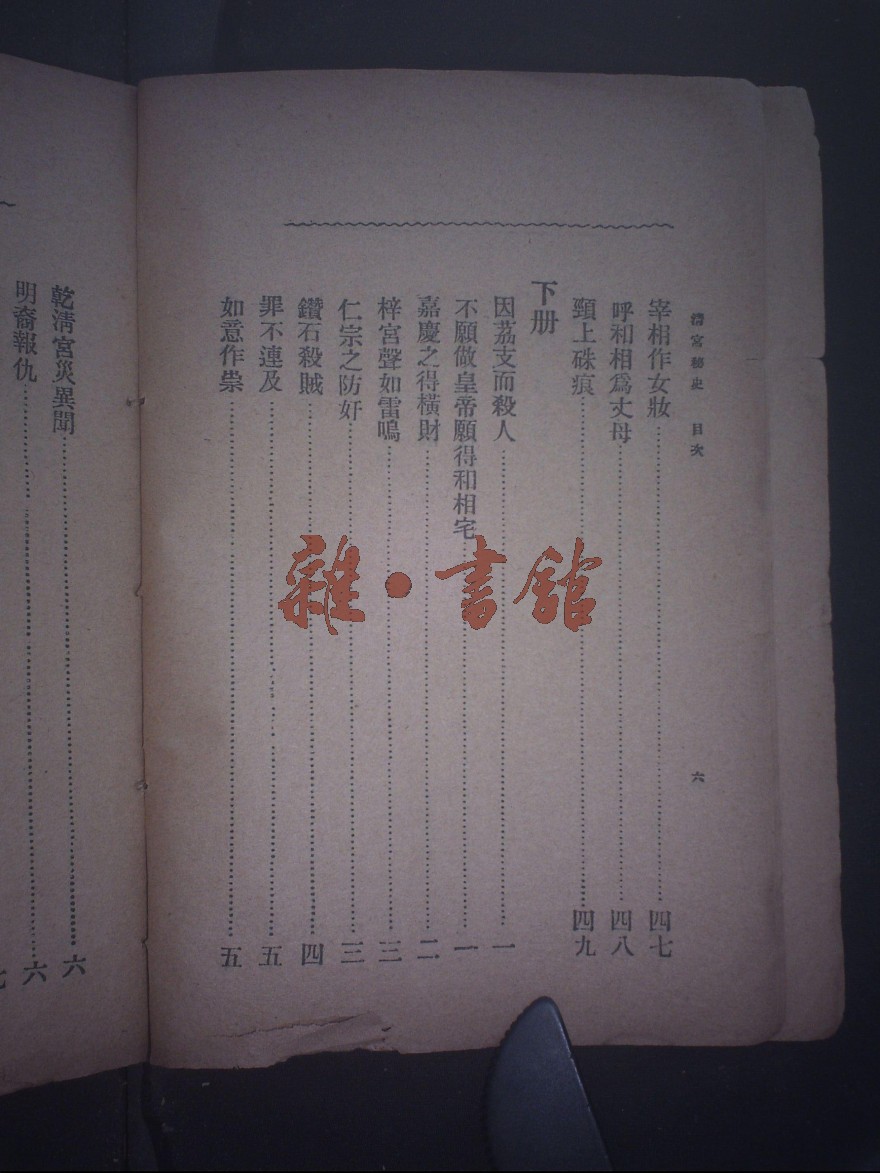 清宮秘史 目次 六
宰相作女妝 四七
呼和相爲丈母 四八
頸上硃痕 四九
下册
因荔支而殺人 一
不願做皇帝願得和相宅 一
嘉慶之得橫財 二
梓宮聲如雷鳴 三
仁宗之防奸 三
鑽石殺賊 四
罪不連及 五
如意作祟 五
乾淸宮災異聞 六
明裔報仇 六
七
雜·書館